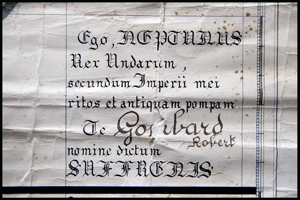 Ego, NEPTUNUS
Rex Undarum,
secundum Imperii mei
ritos et antiquam pompam
Te Gombard
Robert
nomine dictum
SUFFRENIS